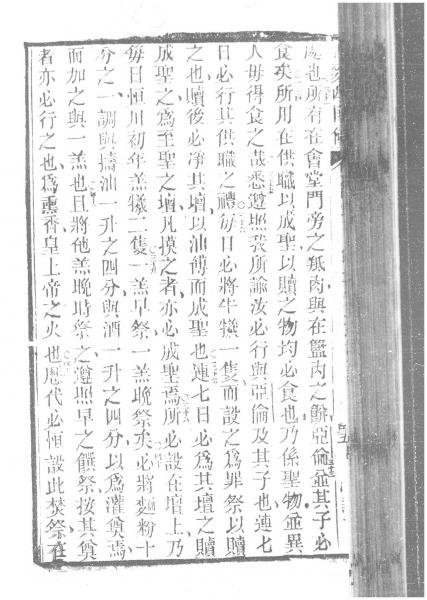 處也所有在會堂門旁之羝肉與在籃內之餅亞倫並其子必
食矣所用在供職以成聖以贖之物均必食也乃係聖物並異
人毋得食之哉悉遵照我所諭汝必行與亞倫及其子也連七
日必行其供職之禮每日必將牛犧一隻而設之為罪祭以贖
之也贖後必凈其壇以油傅而成聖也連七日必為其壇之贖
成聖之為至聖之壇凡摸之者亦必成聖焉所必設在壇上乃
每日恒川初年羔犧二隻一羔早祭一羔晚祭矣必將麵粉十
分之一調與擣油一升之四分與酒一升之四分以為灌奠焉
而加之與一羔也且將他羔晚時祭之遵照早之饌祭按其奠
者亦必行之也為熏香皇上帝之火也歷代必恒設此焚祭在